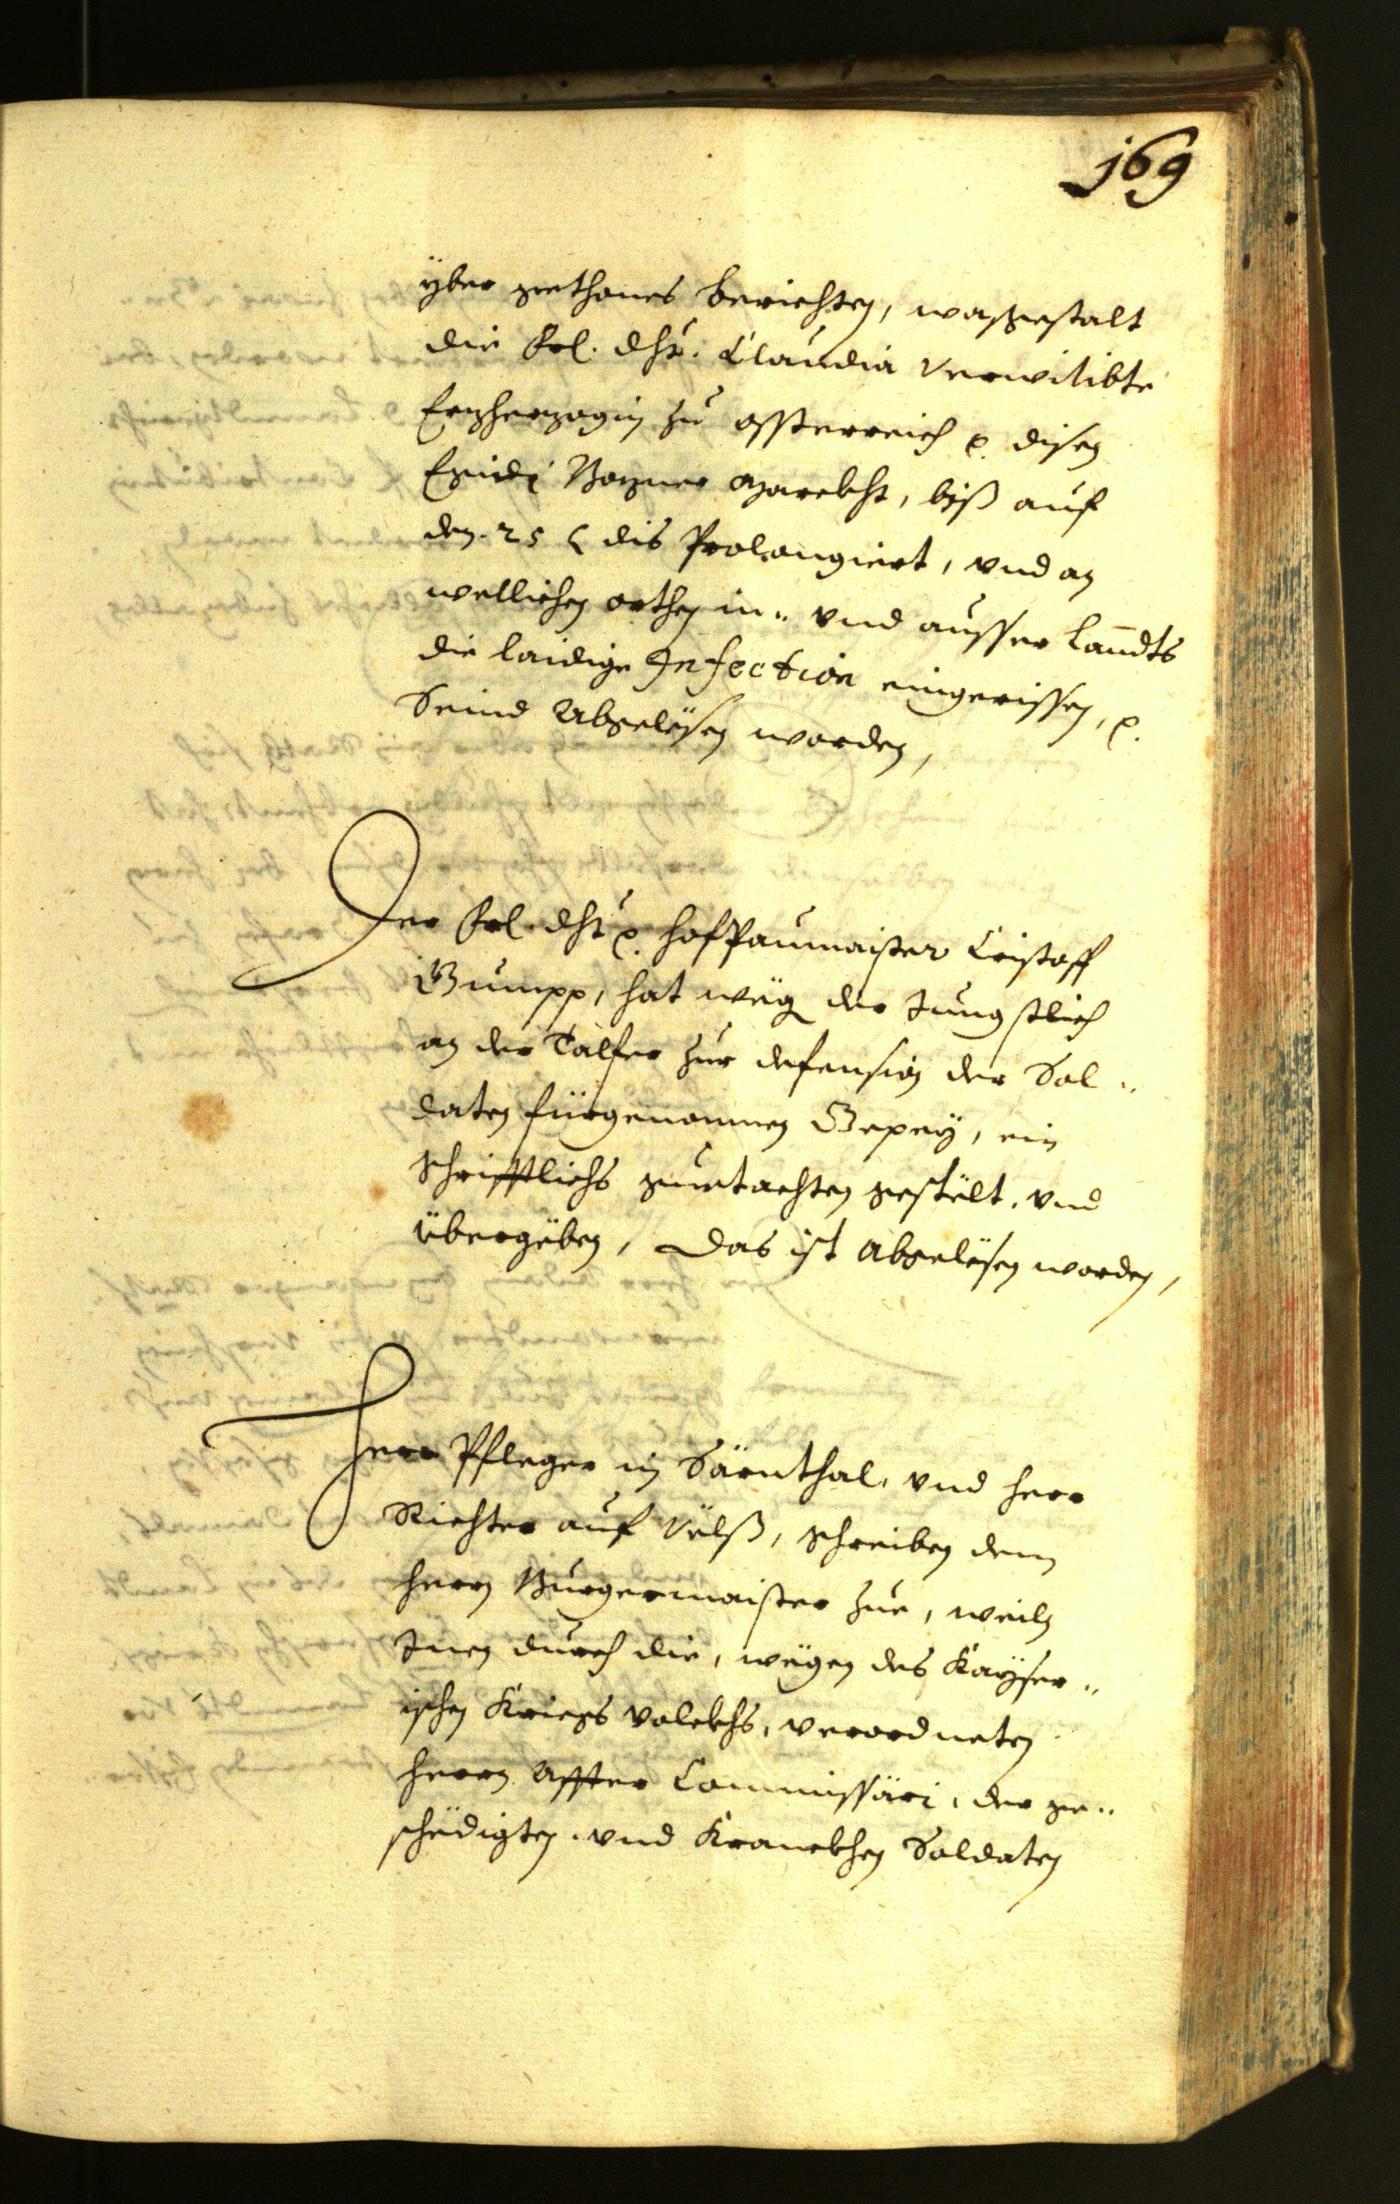 169
yber gethones berichten, wasgestalt
die Frl. dht. Claudia Verwitibte
Erzherzogin zu össterreich p. disen
Egidi Bozner Marckht, biß auf
den 25 dis Prolongiert, vnd an
wellichen orthen in- vnd ausser lanndts
die laidige Infection eingerissen, p.
Seind Abgelösen worden,
Der Frl. dht p. hofpaumaister Cristoff
Gumpp, hat weg der Jungstlich
an der Talfer zur defension der Sol-
daten fürgenomnen Gepey, ein
schrifftlichs guetachten gestelt, vnd
übergeben, das ist abgelösen worden,
Herr Pfleger in Särnthal, vnd herr
Richter auf Velß, schreiben dem
herrn Burgermaister zue, weiln
Inen durch die, wegen des Kayser-
ischen Kriegs volckhs, verordneten
herrn Affter Commissäri, der ge-
schedigten vnd Kranckhen Soldaten